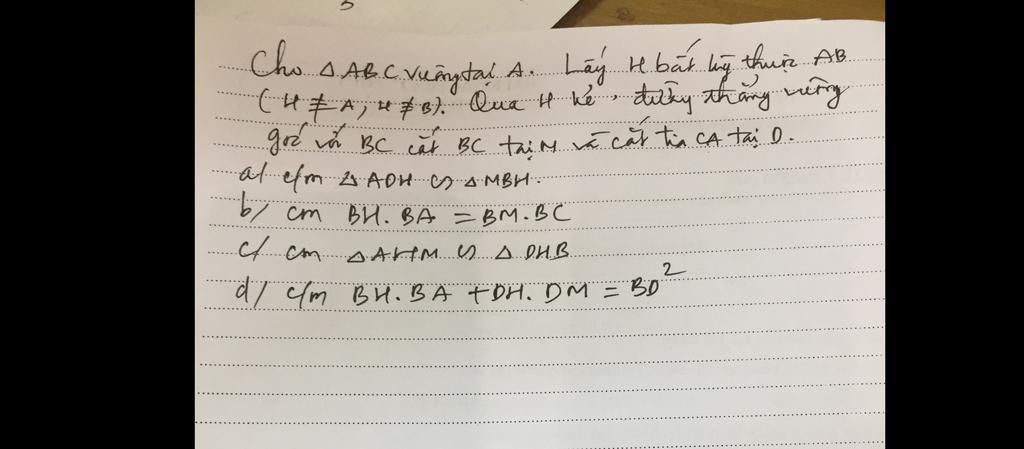 Cho △ABC vuông tại A. Lấy H bất kỳ thuộc AB
(H ≠ A, H ≠ B). Qua H kẻ đường thẳng vuông
góc với BC cắt BC tại M và cắt tia CA tại D.
a/ c/m △ADH ∽ △MBH.
b/ cm BH.BA = BM.BC
c/ cm △AHM ∽ △DHB
d/ c/m BH.BA + DH.DM = BD²